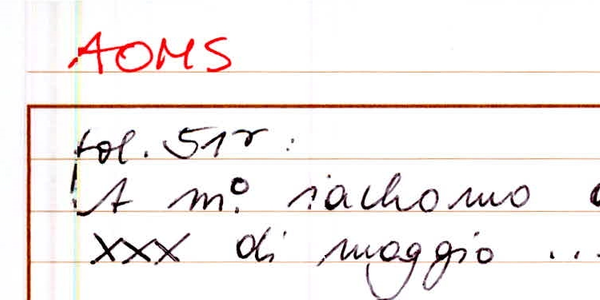 AOMS
fol. 51r:
A m.o iachomo
xxx di maggio ...